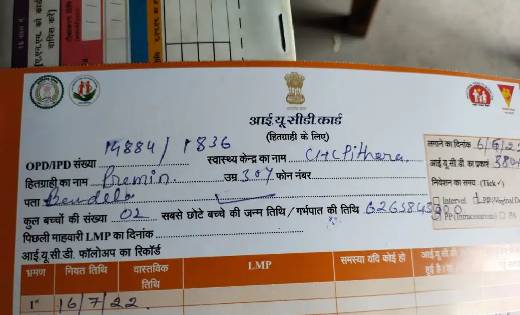 आई यू सी डी कार्ड
(हितग्राही के लिए)
14884/1836
OPD/IPD संख्या स्वास्थ्य केन्द्र का नाम CHC Pithora
लगाने का दिनांक
हितग्राही का नाम Premin उम्र 30y फोन नंबर
आई यू सी डी का प्रकार 380A
पता
निवेशन का समय (Tick ✓)
कुल बच्चों की संख्या 02 सबसे छोटे बच्चे की जन्म तिथि / गर्भपात की तिथि
Interval
पिछली माहवारी LMP का दिनांक
आई यू सी.डी. फॉलोअप का रिकॉर्ड
भ्रमण नियत तिथि वास्तविक तिथि LMP समस्या यदि कोई हो
1st 16/7/22